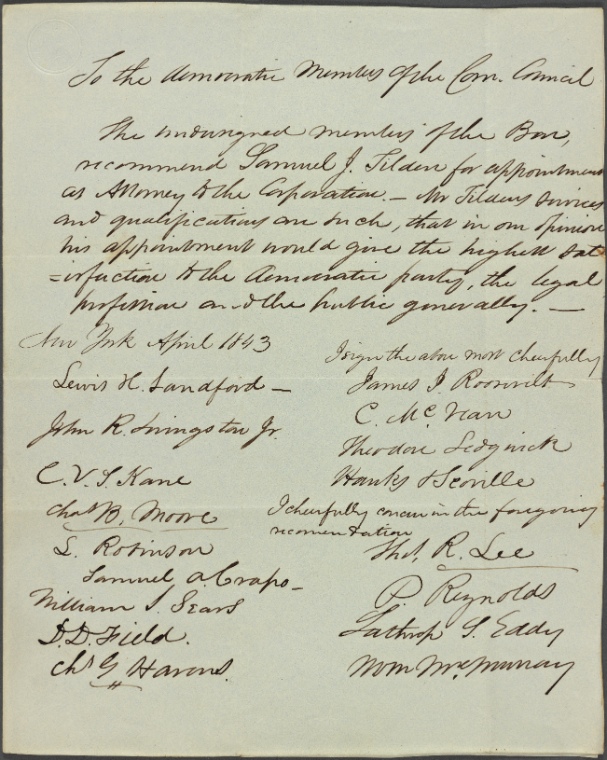 To the democratic Members of the Com. Council
The undersigned members of the Bar,
recommend Samuel J. Tilden for appointment
as Attorney to the Corporation. — Mr Tildens services
and qualifications are such, that in our opinion
his appointment would give the highest sat
=isfaction to the democratic party, the legal
profession and the public generally. —
New York April 1843
Lewis H. Sandford —
John R. Livingston Jr.
C. V. S. Kane
Chas B. Moore
L. Robinson
Samuel A. Crapo
William S. Sears
D. D. Field.
Chs G Havens.
I sign the above most cheerfully
James I Roosevelt
C. McVean
Theodore Sedgwick
Hanks & Scoville
I cheerfully concur in the foregoing
recomendation
Thos. R. Lee
P. Reynolds
Lathrop S. Eddy
Wm McMurray